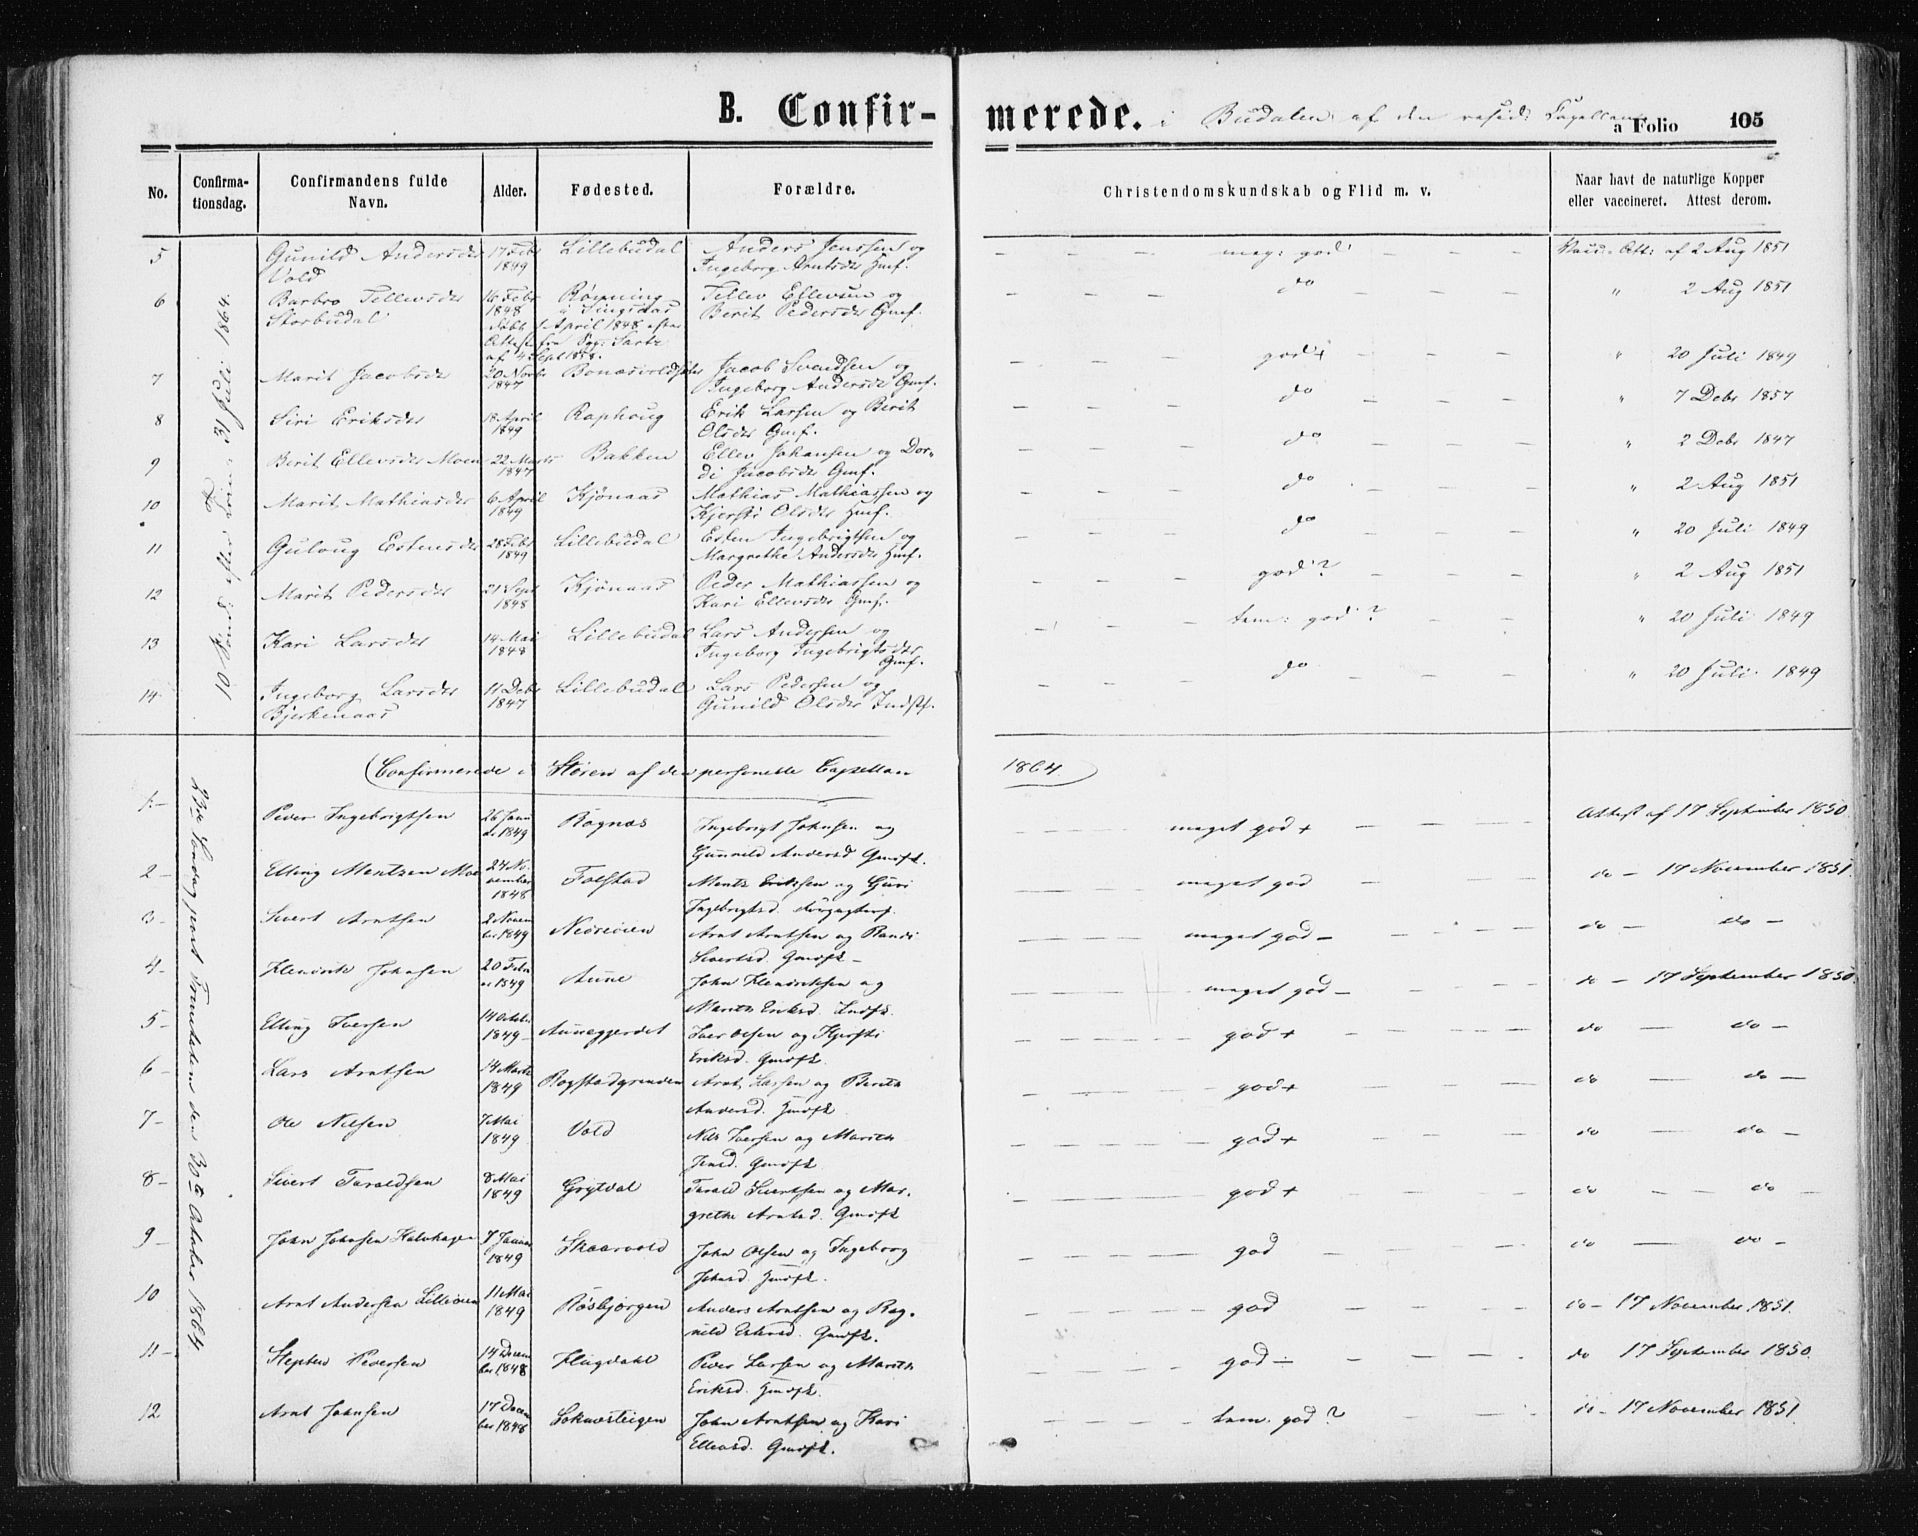 B. Confirmerede. i Budalen af den resid: Capellan
a Folio 105
No. Confirmationsdag. Confirmandens fulde Navn. Alder. Fødested. Forældre. Christendomskundskab og Flid m. v. Naar havt de naturlige Kopper eller vaccineret. Attest derom.
10 Sönd: efter Trin: 31 Juli 1864.
5 Gunild Andersdr Vold 17 Febr 1849 Lillebudal Anders Jenssen og Ingeborg Arntsdr Hmf. — — — — meg: god — — — Vacc. Att: af 2 Aug 1851
6 Barbro Tellevsdr Storbudal 16 Febr 1848 Rönning i Singsaas Tellev Ellevsen og Berit Pedersdr Gmf. — — — — do — — — " 2 Aug 1851
Döbt 1 April 1848 efter Attest fra Pgr: Sartz af 4 Sept 1858.
7 Marit Jacobsdr 20 Novbr 1847 Bonæsvold Jacob Svendsen og Ingeborg Andersdr Gmf. — — — — god+ — — — " 20 Juli 1849
8 Siri Eriksdr 18 April 1849 Raphoug Erik Larsen og Berit Olsdr Gmf. — — — — do — — — " 7 Debr 1857
9 Berit Ellevsdr Moen 22 Marts 1847 Bakken Ellev Johansen og Dordi Jacobsdr Gmf. — — — — do — — — " 2 Debr 1847
10 Marit Mathiasdr 6 April 1849 Kjönaas Mathias Mathiassen og Kjersti Olsdr Hmf. — — — — do — — — " 2 Aug 1851
11 Guloug Estensdr 28 Febr 1849 Lillebudal Esten Ingebrigtsen og Margrethe Andersdr Hmf. — — — — do — — — " 20 Juli 1849
12 Marit Pedersdr 21 Sept 1848 Kjönaas Peder Mathiassen og Kari Ellevsdr Gmf. — — — — god? — — — " 2 Aug 1851
13 Kari Larsdr 14 Mai 1848 Lillebudal Lars Andersen og Ingeborg Ingebrigtsdr Gmf. — — — — tem: god? — — — " 20 Juli 1849
14 Ingeborg Larsdr Bjerkenaas 11 Debr 1847 Lillebudal Lars Pedersen og Gunild Olsdr Indstf. — — — — do — — — " 20 Juli 1849
Confirmerede i Støren af den personelle Capellan 1864
23de Søndag post Trinitatem den 30te October 1864
1 — Peder Ingebrigtsen 26 Januar 1849 Rognæs Ingebrigt Johnsen og Gunnild Andersd Gmfk. — — — — maget god + — — — Attest af 17 September 1850.
2 — Elling Mentzen Moe 24 November 1848 Folstad Mentz Eriksen og Guri Ingebrigtsd. — — — — maget god — — — do — 17 November 1851.
3 — Sivert Arntsen 2 November 1849 Nedreøien Arnt Arntsen og Randi Sivertsd. Gmofk — — — — maget god — — — do — do —
4 — Hendrik Johnsen 20 Febru. 1849 Aune John Hendriksen og Marith Eriksd. Indfk. — — — — maget god — — — do — 17 September 1850.
5 — Elling Iversen 14 October 1849 — Aunegjerdet Iver Olsen og Kjersti Eriksd. Gmofk — — — — god + — — — do — do —
6 — Lars Arntsen 14 Marts 1849 Rogstadgrinden Arnt Larsen og Berith Andersd. Hmofk — — — — god + — — — do — do —
7 — Ole Nilsen 7 Mai 1849 Vold Nils Iversen og Marith Jensd. Gmofk — — — — god + — — — do — do —
8 — Sivert Taraldsen 8 Mai 1849 Grytdal Tarald Sivertsen og Margrethe Arntsd. Gmofk — — — — god + — — — do — do —
9 — John Johnsen Kalvhagen 7 Januar 1849 Skaarvold John Olsen og Ingeborg Johnsd. Hmofk. — — — — god — — — do — do —
10 Arnt Andersen Lilleøien 11 Mai 1849 Røsbjørgen Anders Arntsen og Ragnild Estensd. Gmofk. — — — — god — — — do — 17 November 1851.
11 — Stephen Pedersen 14 December 1848 Hugdahl Peder Larsen og Marith Eriksd. Hmofk. — — — — god — — — do 17 September 1850.
12 Arnt Johnsen 17 December 1848 Soknesteigen John Arntsen og Kari Ellevsd. Gmofk. — — — — tem. god? — — — do — 17 November 1851.